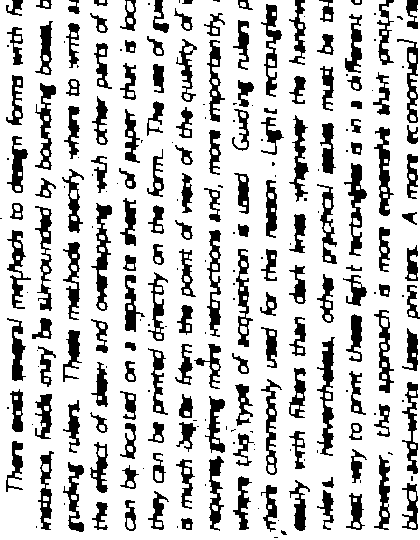 There exist several methods to design forms with
instance, fields may be surrounded by bounding boxes,
guiding rulers. These methods specify where to write
the effect of skew and overlapping with other parts of
can be located on a separate sheet of paper that is
they can be printed directly on the form. The use of
is much better from the point of view of the quality of
requires giving more instructions and, more importantly,
where this type of acquisition is used. Guiding rulers
more commonly used for this reason. Light rectangles
easily with filters than dark lines whenever the
rulers. Nevertheless, other practical issues must be
best way to print these light rectangles is in a different
however, this approach is more expensive than printing
black-and-white laser printers. A more economical